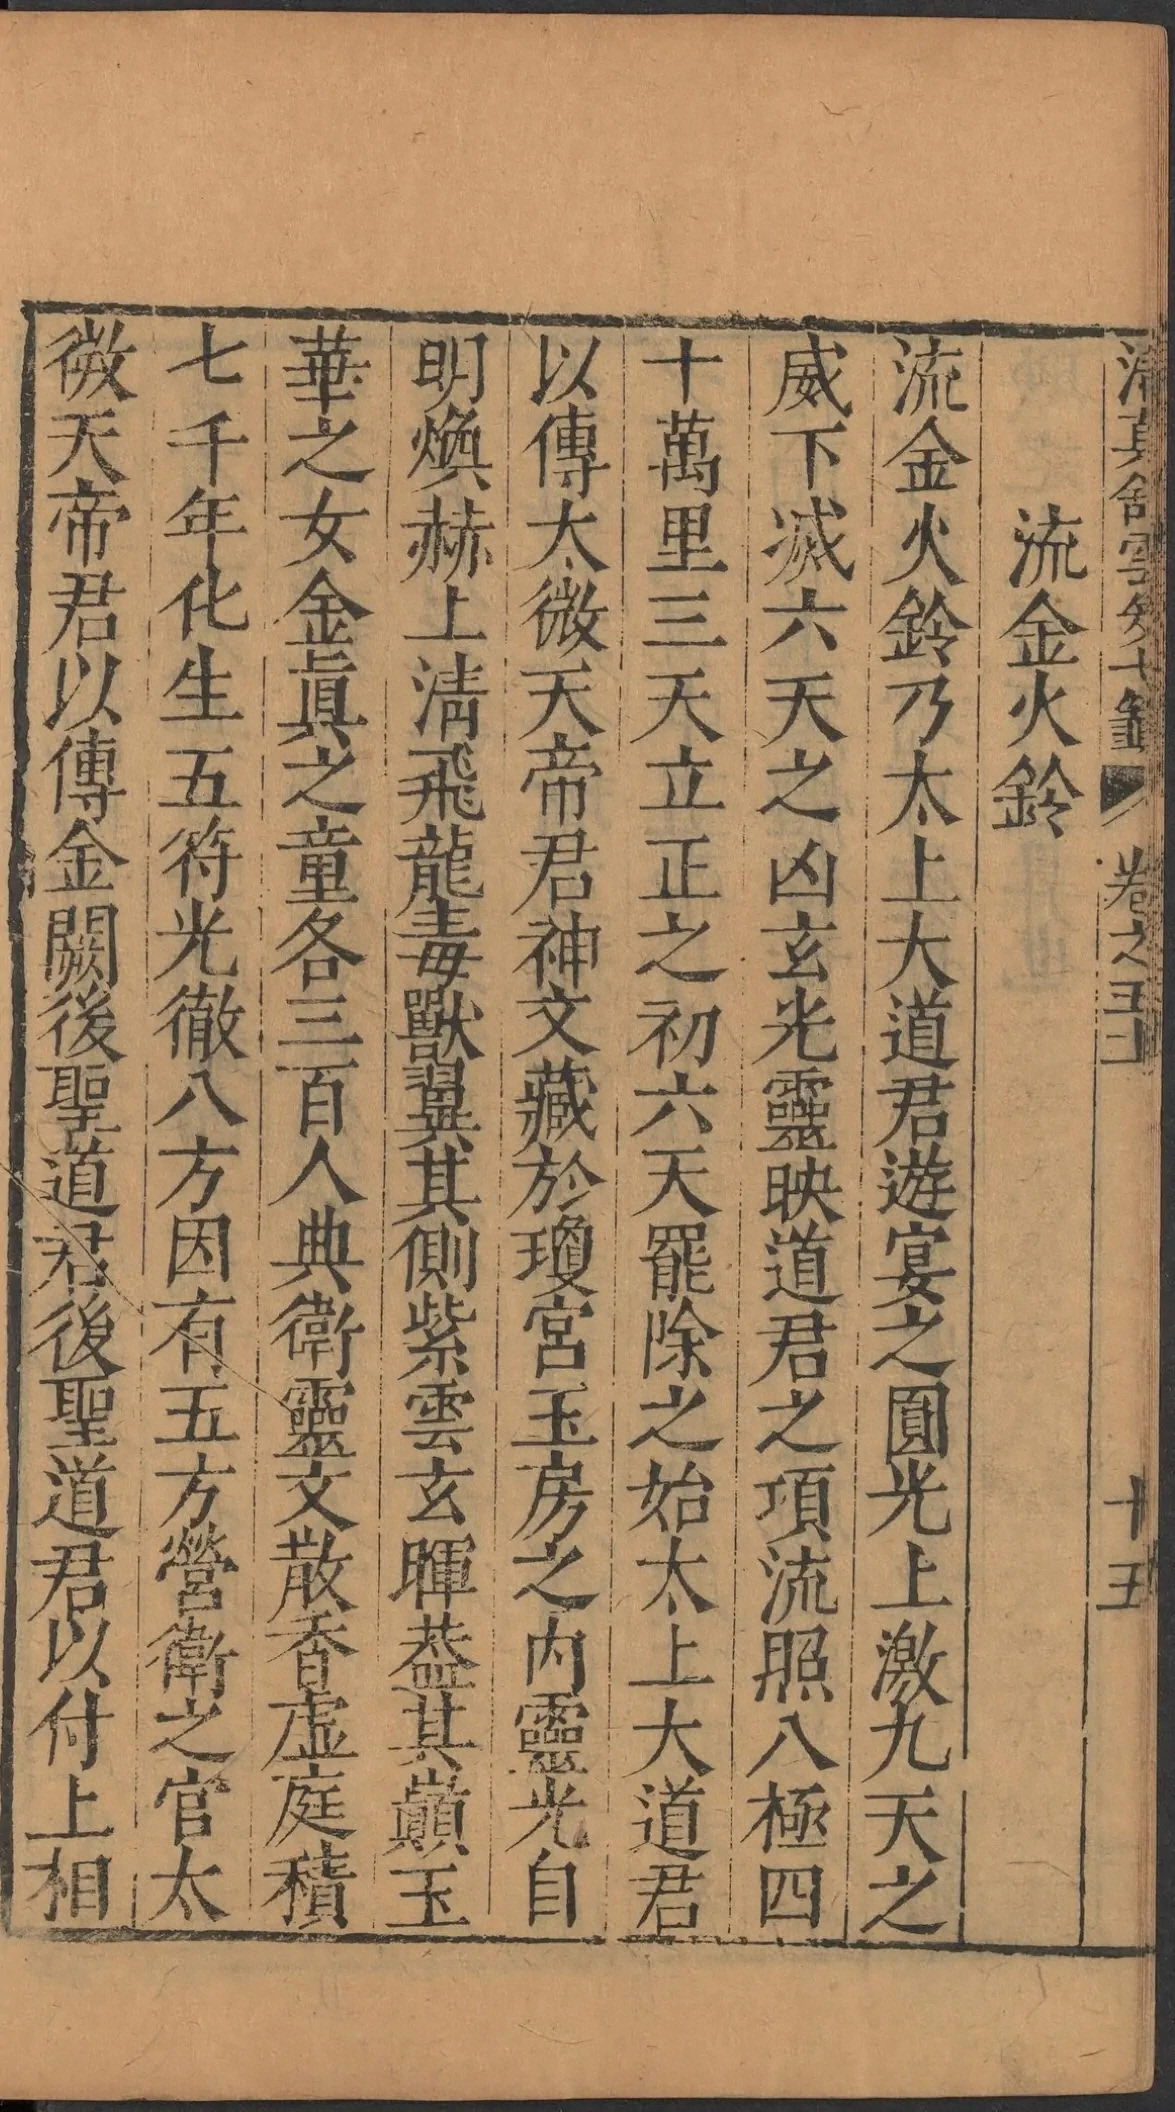 流金火鈴
流金火鈴乃太上大道君遊宴之圓光上激九天之
威下滅六天之凶玄光靈映道君之項流照八極四
十萬里三天立正之初六天罷除之始太上大道君
以傳太微天帝君神文藏於瓊宮玉房之內靈光自
明煥赫上淸飛龍毒獸翼其側紫雲玄暉葢其巔玉
華之女金眞之童各三百人典衛靈文散香虛庭積
七千年化生五符光徹八方因有五方營衛之官太
微天帝君以傳金闕後聖道君後聖道君以付上相
卷之五上
十五